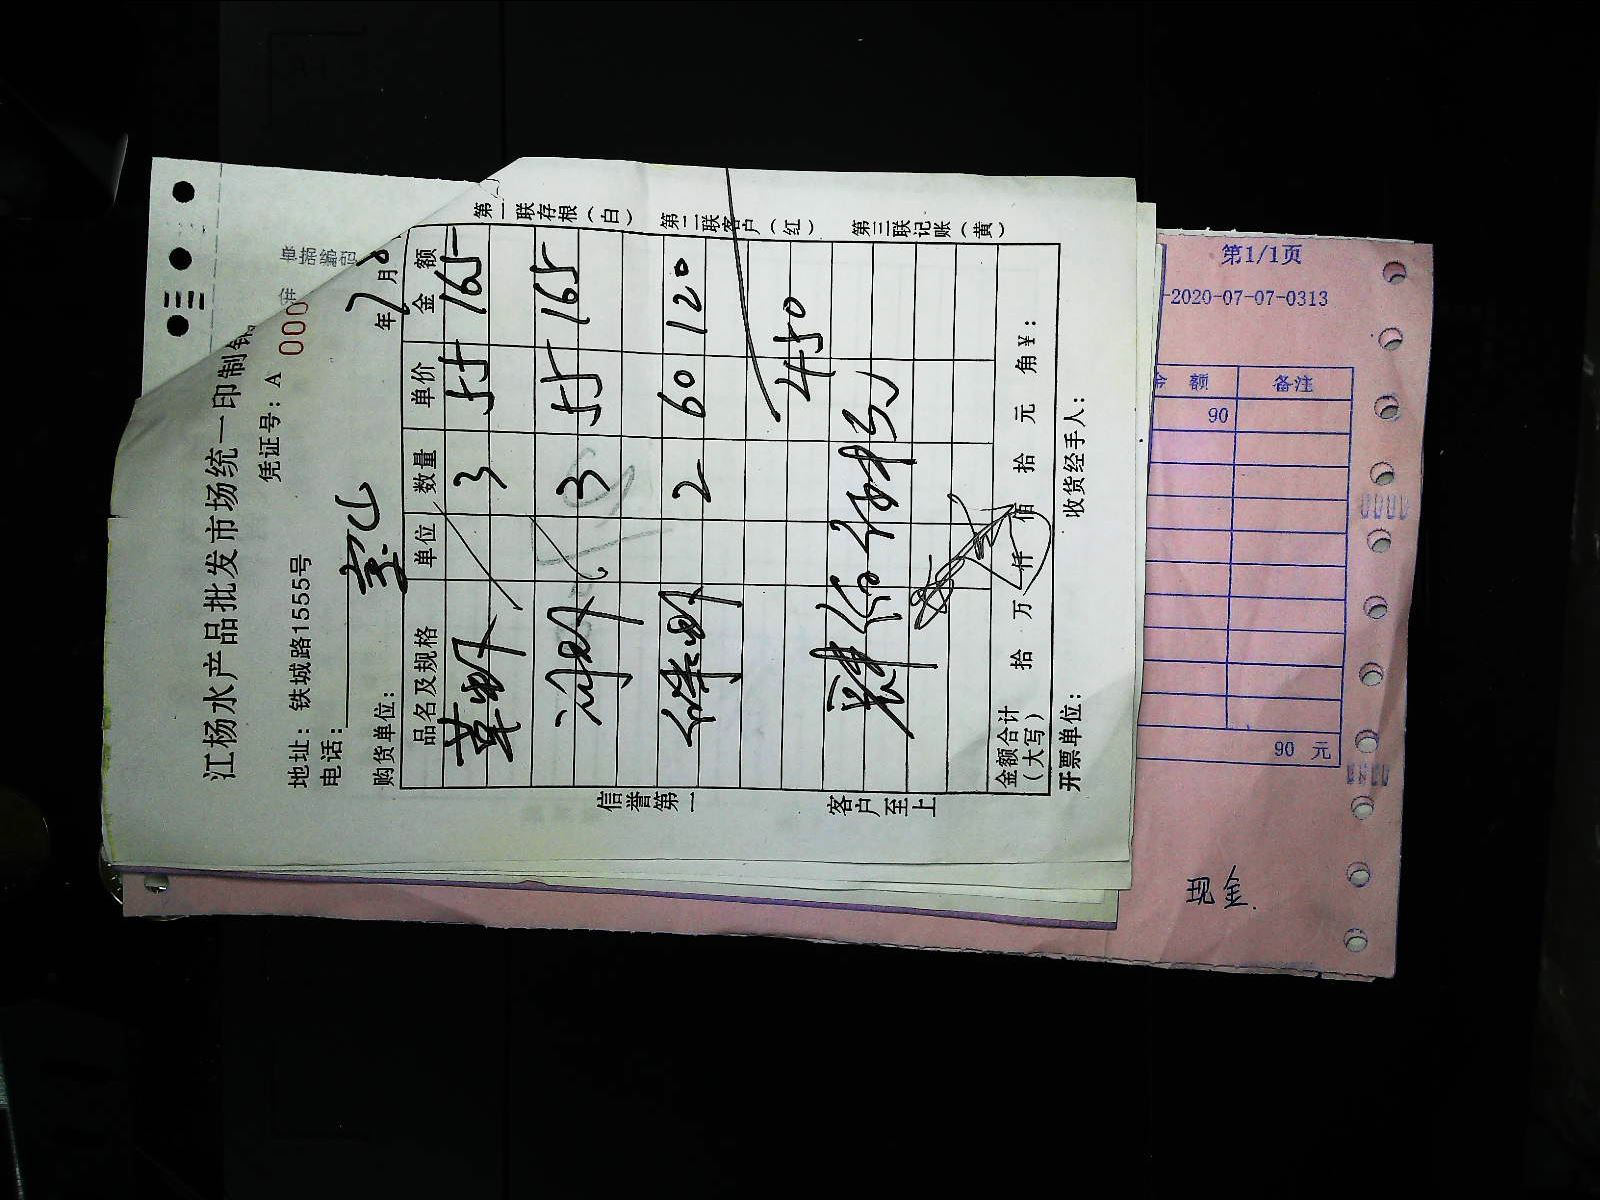 江杨水产品批发市场统一印制
凭证号：A 000
地址：铁城路15555号
电话：
购货单位：宝山 年7月8
品名及规格 单位 数量 单价 金额
草虾 3 55 165
3 55 165
2 60 120
450
金额合计
（大写） 拾 万 仟 佰 拾 元 角 ¥：
开票单位： 收货经手人：
信誉第一
客户至上
第一联存根（白）
第二联客户（红）
第三联记账（黄）
第1/1页
-2020-07-07-0313
金 额 备注
90
90 元
现金.